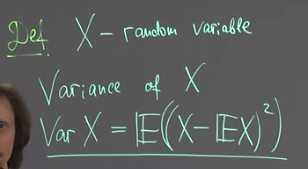 Def X - random variable
Variance of X
Var X = 𝔼((X - 𝔼X)²)